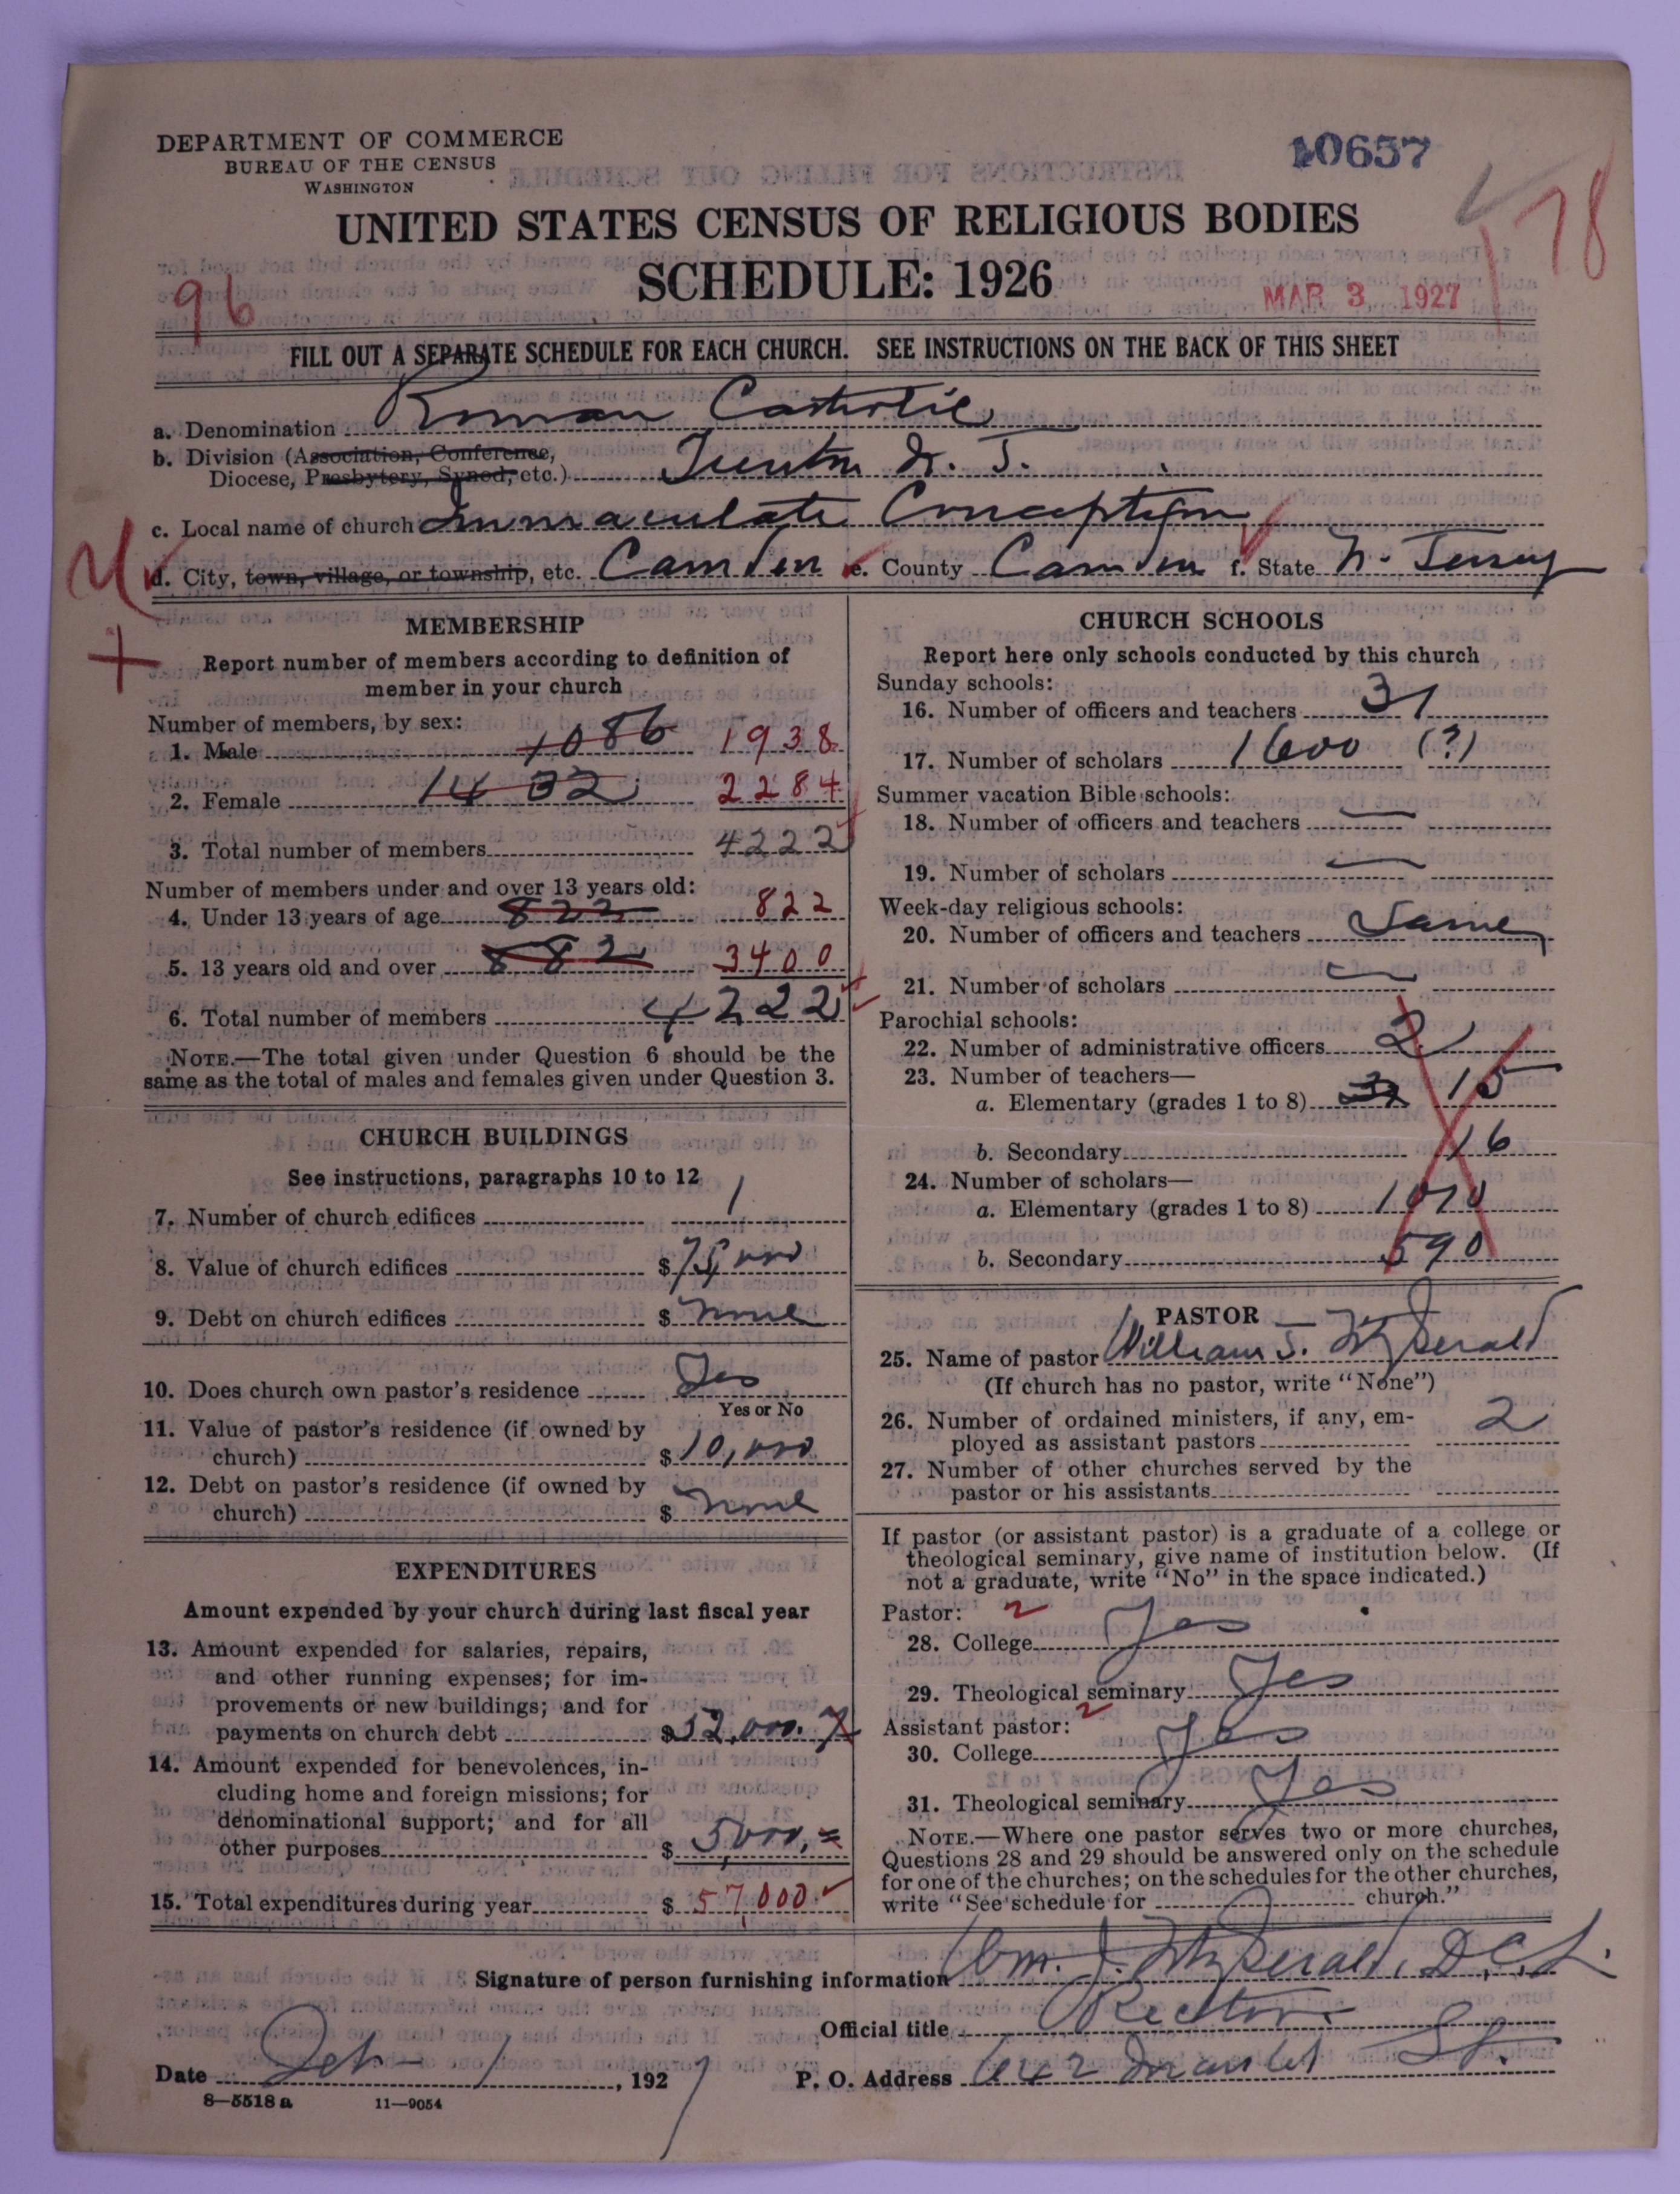 DEPARTMENT OF COMMERCE
BUREAU OF THE CENSUS
WASHINGTON
10657
178
UNITED STATES CENSUS OF RELIGIOUS BODIES
SCHEDULE: 1926
96
MAR 3 1927
FILL OUT A SEPARATE SCHEDULE FOR EACH CHURCH. SEE INSTRUCTIONS ON THE BACK OF THIS SHEET
a. Denomination Roman Catholic
b. Division (Association, Conference,
Diocese, Presbytery, Synod, etc.) Trenton N. J.
c. Local name of church Immaculate Conception
d. City, town, village, or township, etc. Camden e. County Camden f. State N. Jersey
MEMBERSHIP
Report number of members according to definition of
member in your church
Number of members, by sex:
1. Male 1086 1938
2. Female 1432 2284
3. Total number of members 4222
Number of members under and over 13 years old:
4. Under 13 years of age 822 822
5. 13 years old and over 882 3400
6. Total number of members 4222
NOTE.—The total given under Question 6 should be the
same as the total of males and females given under Question 3.
CHURCH BUILDINGS
See instructions, paragraphs 10 to 12
7. Number of church edifices 1
8. Value of church edifices $75,000
9. Debt on church edifices $ none
10. Does church own pastor's residence Yes
Yes or No
11. Value of pastor's residence (if owned by
church) $10,000
12. Debt on pastor's residence (if owned by
church) $ none
EXPENDITURES
Amount expended by your church during last fiscal year
13. Amount expended for salaries, repairs,
and other running expenses; for im-
provements or new buildings; and for
payments on church debt $52,000.
14. Amount expended for benevolences, in-
cluding home and foreign missions; for
denominational support; and for all
other purposes $ 5000.
15. Total expenditures during year $ 57,000
CHURCH SCHOOLS
Report here only schools conducted by this church
Sunday schools:
16. Number of officers and teachers 31
17. Number of scholars 1600 (?)
Summer vacation Bible schools:
18. Number of officers and teachers —
19. Number of scholars —
Week-day religious schools:
20. Number of officers and teachers Same
21. Number of scholars —
Parochial schools:
22. Number of administrative officers 2
23. Number of teachers—
a. Elementary (grades 1 to 8) 15
b. Secondary 16
24. Number of scholars—
a. Elementary (grades 1 to 8) 1010
b. Secondary 590
PASTOR
25. Name of pastor William J. Fitzgerald
(If church has no pastor, write "None")
26. Number of ordained ministers, if any, em-
ployed as assistant pastors 2
27. Number of other churches served by the
pastor or his assistants
If pastor (or assistant pastor) is a graduate of a college or
theological seminary, give name of institution below. (If
not a graduate, write "No" in the space indicated.)
Pastor: 2
28. College Yes
29. Theological seminary Yes
Assistant pastor: 2
30. College Yes
31. Theological seminary Yes
NOTE.—Where one pastor serves two or more churches,
Questions 28 and 29 should be answered only on the schedule
for one of the churches; on the schedules for the other churches,
write "See schedule for church."
Signature of person furnishing information Wm. J. Fitzgerald, D.C.L.
Official title Rector
Date Feb - 1, 1927 P. O. Address 642 Market St.
8—5518 a 11—9054